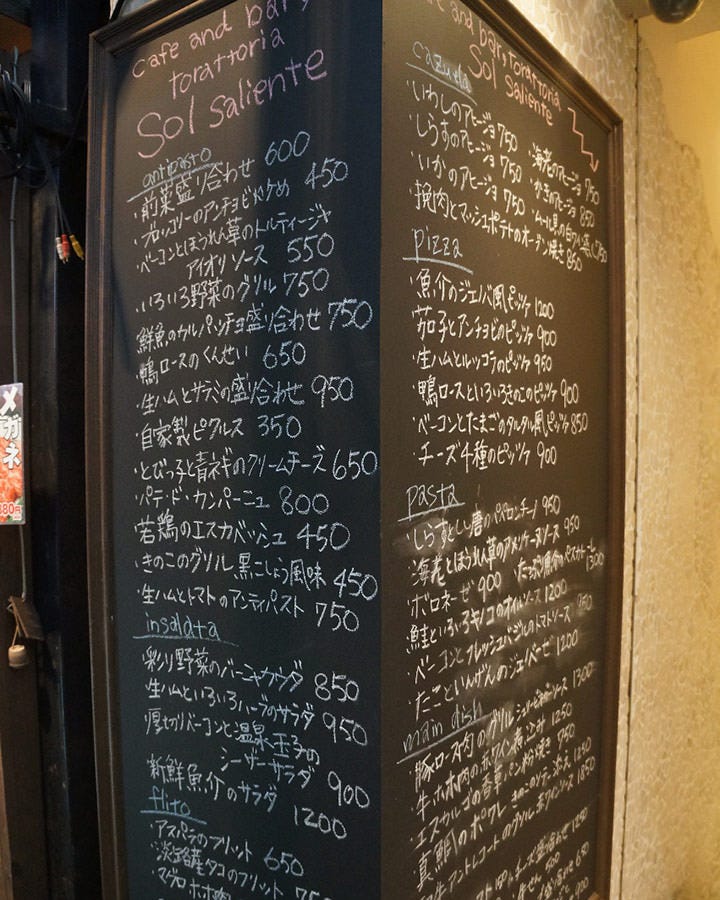 cafe and bar,
torattoria
Sol saliente
antipasto
・前菜盛り合わせ 600
・ブロッコリーのアンチョビガケめ 450
・ベーコンとほうれん草のトルティージャ
アイオリソース 550
・いろいろ野菜のグリル 750
・鮮魚のカルパッチョ盛り合わせ 750
・鴨ロースのくんせい 650
・生ハムとサラミの盛り合わせ 950
・自家製ピクルス 350
・とびっ子と青ネギのクリームチーズ 650
・パテ・ド・カンパーニュ 800
・若鶏のエスカベッシュ 450
・きのこのグリル 黒こしょう風味 450
・生ハムとトマトのアンティパスト 750
insalata
・彩り野菜のバーニャカウダ 850
・生ハムといろいろハーブのサラダ 950
・厚切りベーコンと温泉玉子の
シーザーサラダ 900
・新鮮魚介のサラダ 1200
flito
・アスパラのフリット 650
・淡路産タコのフリット 750
・マグロホホ肉
cafe and bar, torattoria
Sol saliente
cazuela
・いわしのアヒージョ 750 ・海老のアヒージョ 750
・しらすのアヒージョ 750 ・かきのアヒージョ 850
・いかのアヒージョ 750 ・ムール貝の白ワイン蒸し 750
・挽肉とマッシュポテトのオーブン焼き 850
pizza
・魚介のジェノバ風ピッツァ 1200
・茄子とアンチョビのピッツァ 900
・生ハムとルッコラのピッツァ 950
・鴨ロースといろいろきのこのピッツァ 900
・ベーコンとたまごのタルタル風ピッツァ 850
・チーズ4種のピッツァ 900
pasta
・しらすとしし唐のペペロンチーノ 950
・海老とほうれん草のアメリケーヌソース 950
・ボロネーゼ 900 ・たっぷり魚介のペスカトーレ 1300
・鮭といろいろキノコのオイルソース 1200
・ベーコンとフレッシュバジルのトマトソース 950
・たこといんげんのジェノベーゼ 1200
main dish
・豚ロース肉のグリル 1300
・牛ホホ肉の赤ワイン煮込み 1250
・エスカルゴの香草パン粉焼き 750
・真鯛のポワレ きのこのソテー添え 1250
アントレコートのグリル 赤ワインソース 1850